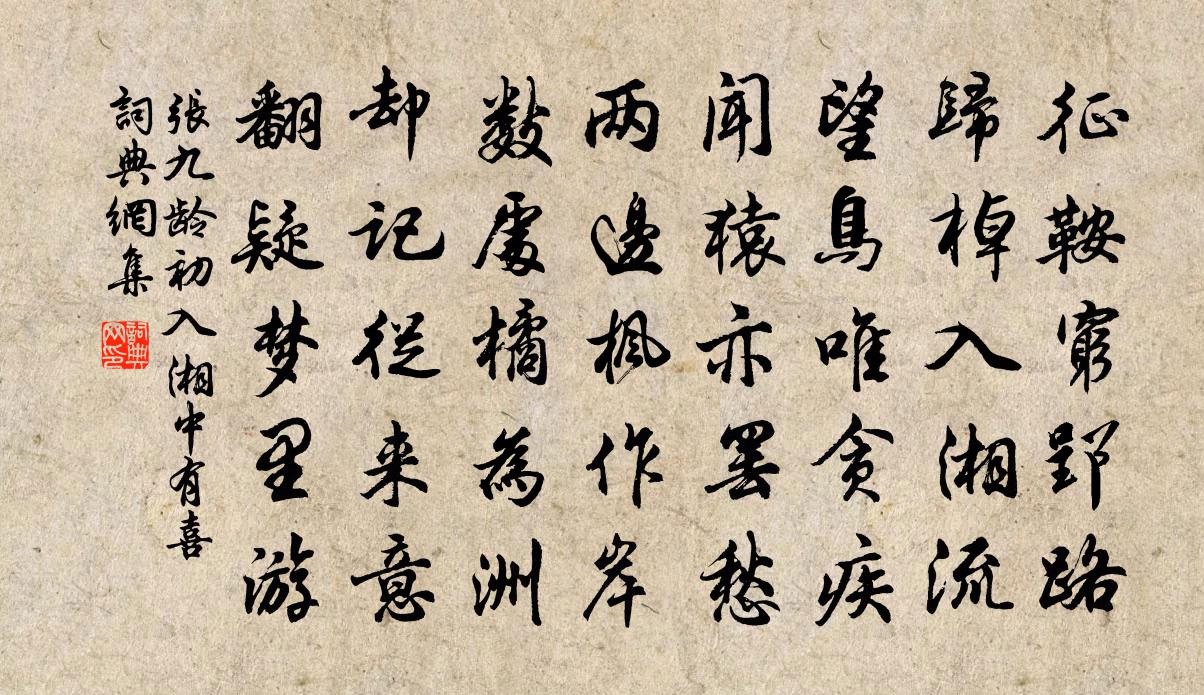 征鞍窮郢路
歸棹入湘流
望鳥唯貪疾
聞猿亦罷愁
两邊楓作岸
數處橘為洲
却記從来意
翻疑梦里游
張九龄初入湘中有喜
詞典網集
詞典网印